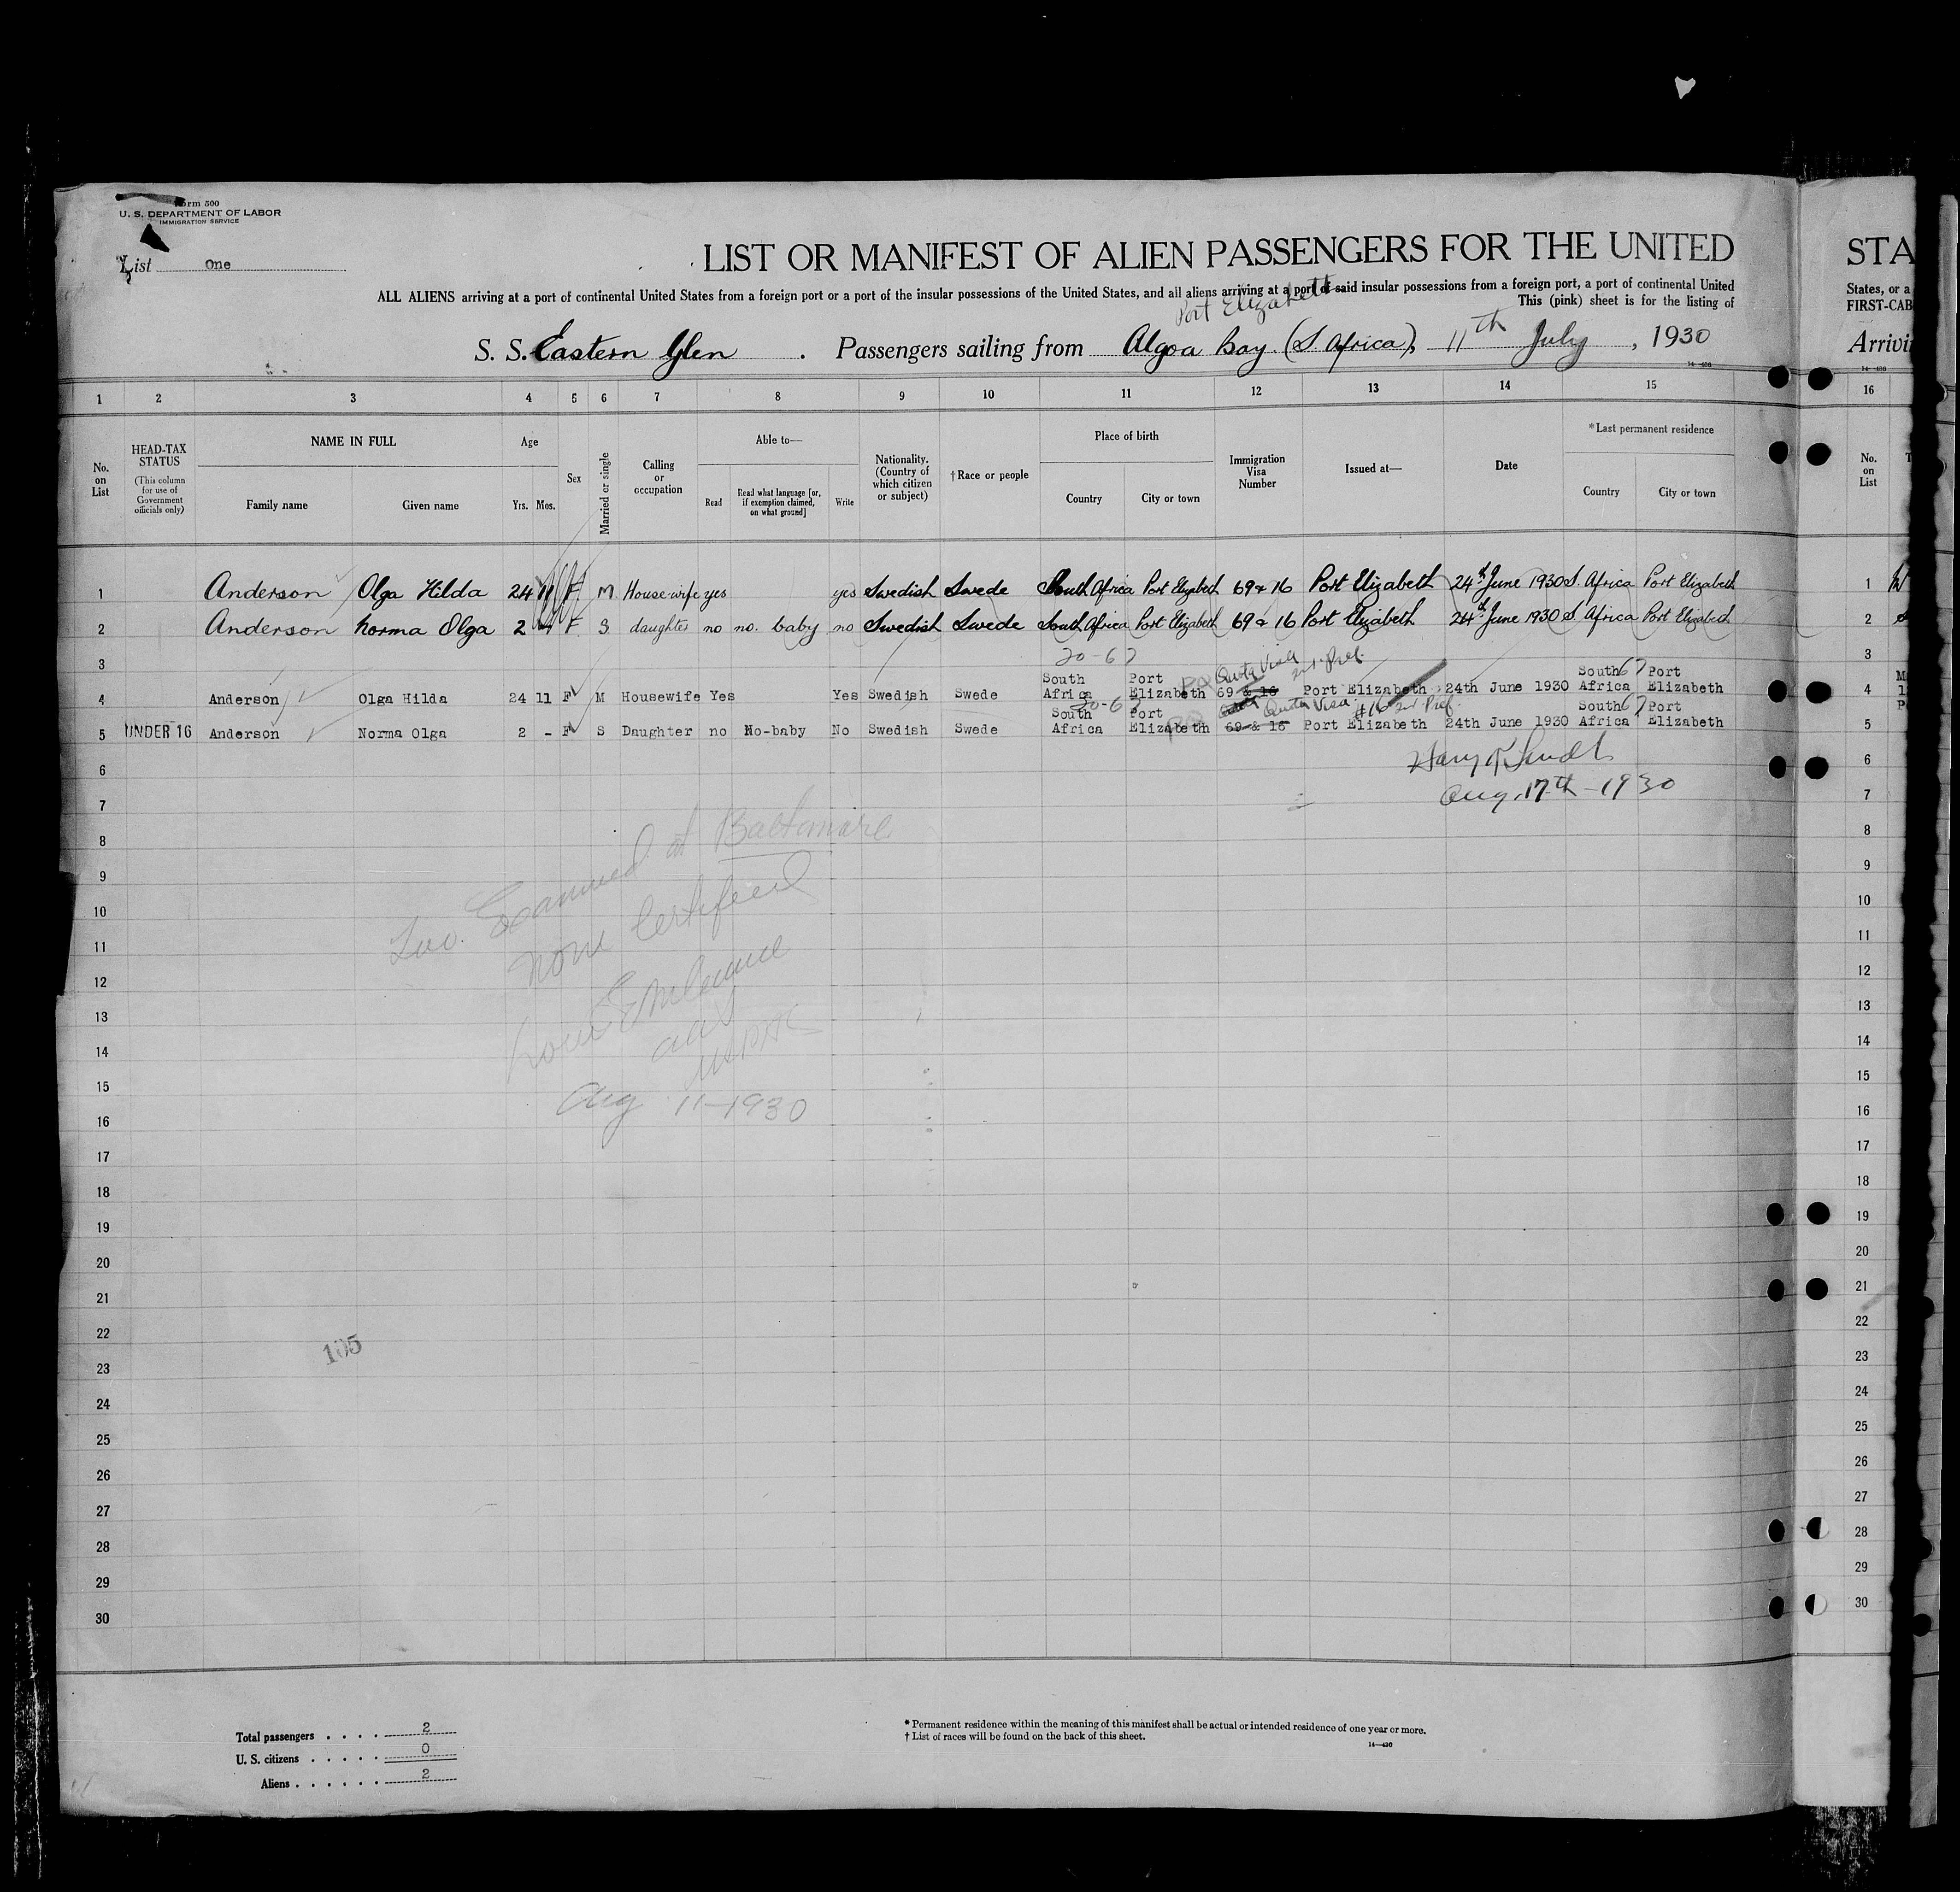 Form 500
U. S. DEPARTMENT OF LABOR
IMMIGRATION SERVICE
List One
LIST OR MANIFEST OF ALIEN PASSENGERS FOR THE UNITED
STA
ALL ALIENS arriving at a port of continental United States from a foreign port or a port of the insular possessions of the United States, and all aliens arriving at a port of said insular possessions from a foreign port, a port of continental United
States, or a
This (pink) sheet is for the listing of
FIRST-CAB
Port Elizabeth
S. S. Eastern Glen . Passengers sailing from Algoa Bay (S. Africa), 11th July , 1930
Arrivi
1 2 3 4 5 6 7 8 9 10 11 12 13 14 15 16
HEAD-TAX STATUS
(This column for use of Government officials only)
No. on List
NAME IN FULL
Family name Given name
Age
Yrs. Mos.
Sex
Married or single
Calling or occupation
Able to—
Read
Read what language [or, if exemption claimed, on what ground]
Write
Nationality. (Country of which citizen or subject)
†Race or people
Place of birth
Country City or town
Immigration Visa Number
Issued at—
Date
*Last permanent residence
Country City or town
No. on List
1 Anderson Olga Hilda 24 11 F M Housewife yes yes Swedish Swede South Africa Port Elizabeth 69 & 16 Port Elizabeth 24th June 1930 S. Africa Port Elizabeth 1
2 Anderson Norma Olga 2 F S daughter no no. baby no Swedish Swede South Africa Port Elizabeth 69 & 16 Port Elizabeth 24th June 1930 S. Africa Port Elizabeth 2
3 20-67 Quota Visa 2nd Pref. 3
4 Anderson Olga Hilda 24 11 F M Housewife Yes Yes Swedish Swede South Africa Port Elizabeth 69 & 16 Port Elizabeth 24th June 1930 South Africa 67 Port Elizabeth 4
20-67 Quota Visa #16 2nd Pref.
5 UNDER 16 Anderson Norma Olga 2 - F S Daughter no No-baby No Swedish Swede South Africa Port Elizabeth 69 & 16 Port Elizabeth 24th June 1930 South Africa 67 Port Elizabeth 5
6 6
7 Aug. 17th - 1930 7
8 8
Two Examined at Baltimore
9 9
none Certified
10 10
11 11
12 12
13 13
14 14
15 15
Aug 11-1930
16 16
17 17
18 18
19 19
20 20
21 21
22 22
105
23 23
24 24
25 25
26 26
27 27
28 28
29 29
30 30
Total passengers . . . . 2
U. S. citizens . . . . . 0
Aliens . . . . . . 2
* Permanent residence within the meaning of this manifest shall be actual or intended residence of one year or more.
† List of races will be found on the back of this sheet.